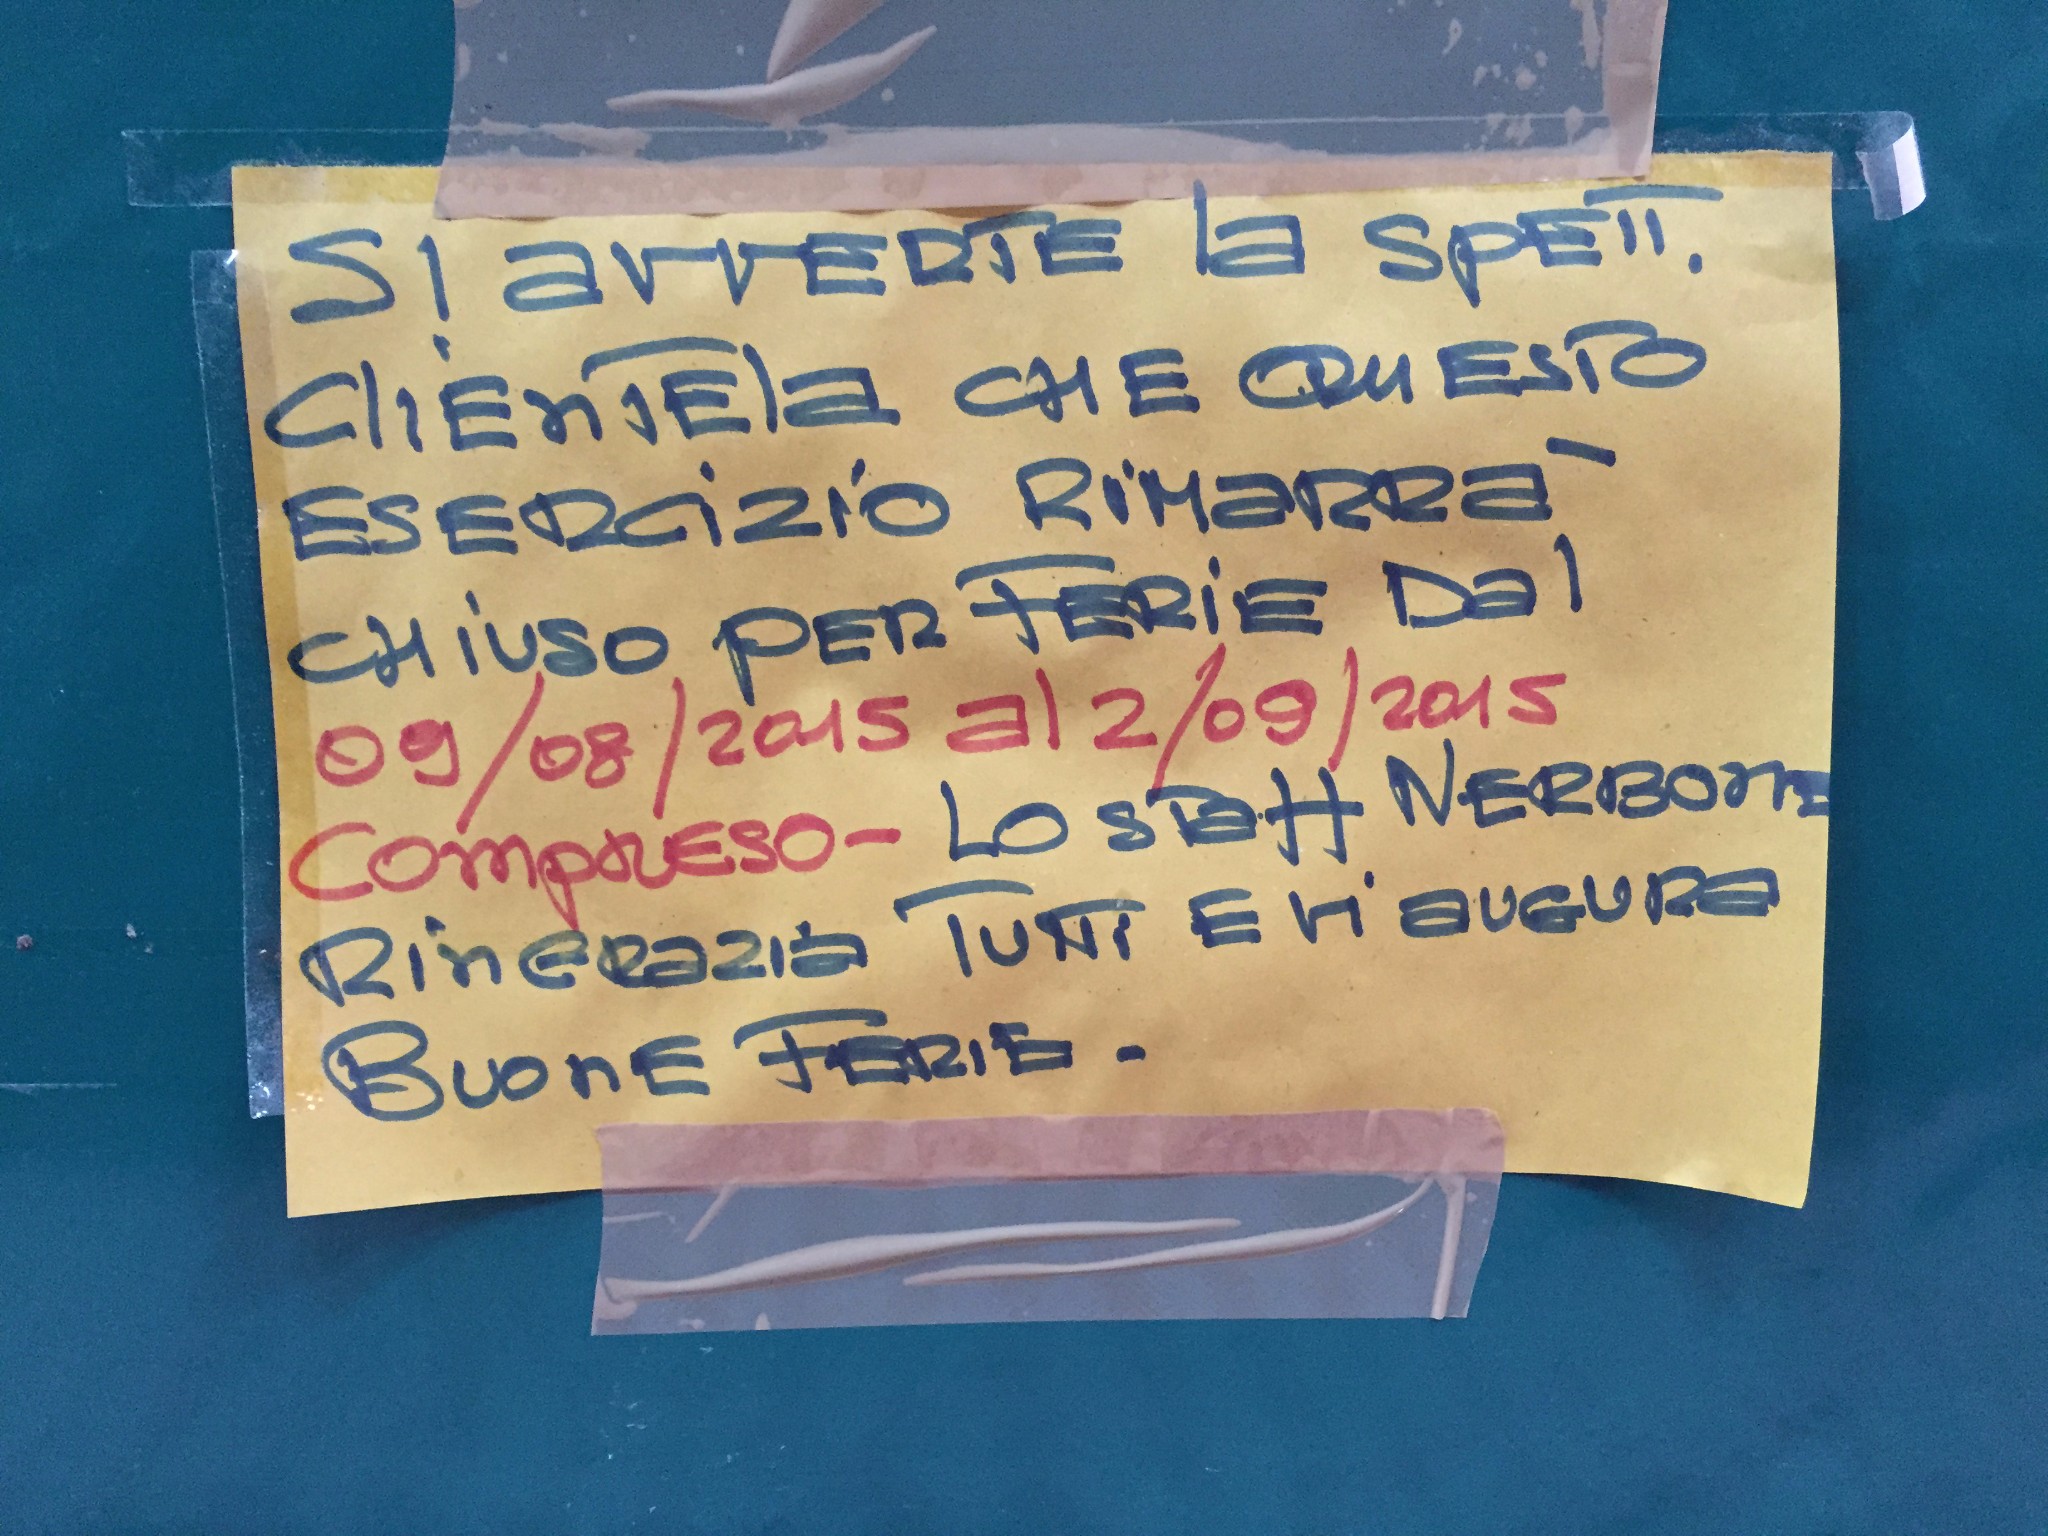 Si avverte la spett.
clientela che questo
esercizio rimarrà
chiuso per ferie dal
09/08/2015 al 2/09/2015
compreso - Lo staff Nerbone
ringrazia tutti e vi augura
Buone ferie.